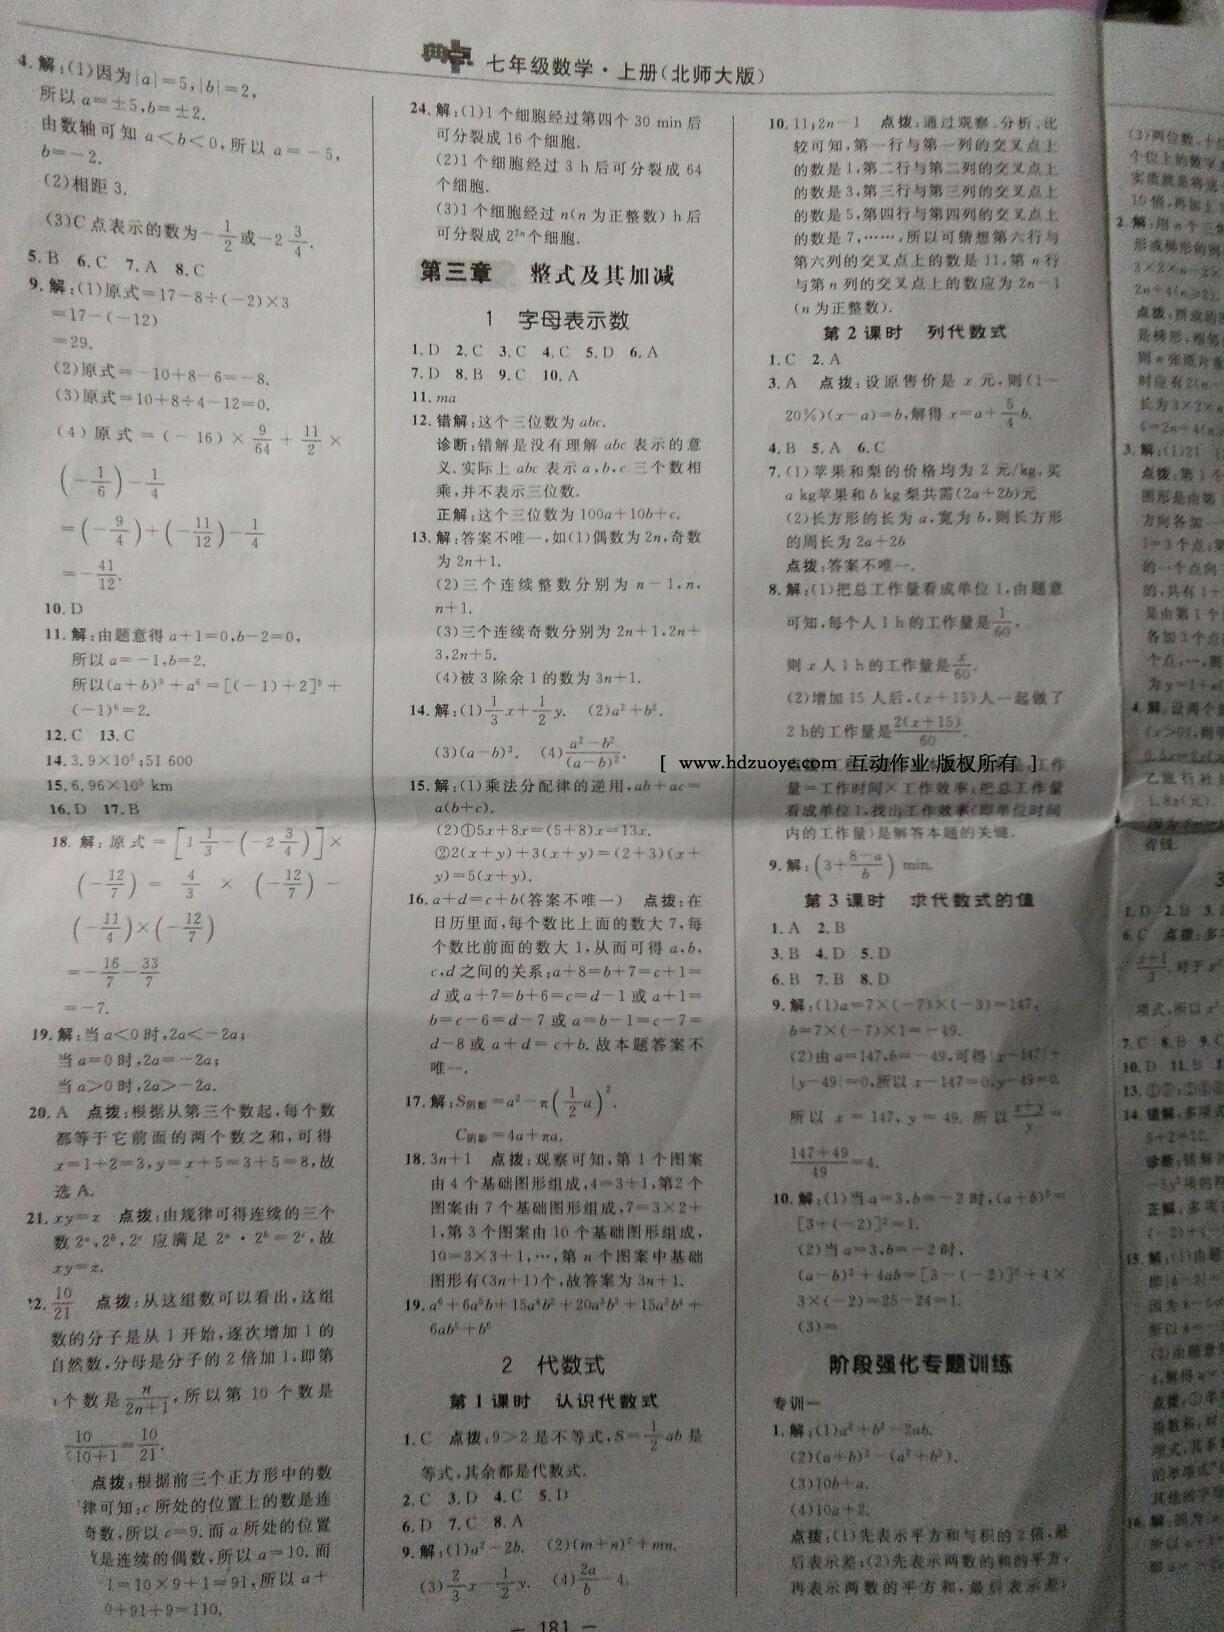 典点 七年级数学·上册(北师大版)
4.解:(1)因为|a|=5,|b|=2,
所以a=±5,b=±2.
由数轴可知a<b<0,所以a=-5,
b=-2.
(2)相距3.
(3)C点表示的数为-1/2或-2 3/4.
5.B 6.C 7.A 8.C
9.解:(1)原式=17-8÷(-2)×3
=17-(-12)
=29.
(2)原式=-10+8-6=-8.
(3)原式=10+8÷4-12=0.
(4)原式=(-16)×9/64+11/2×
(-1/6)-1/4
=(-9/4)+(-11/12)-1/4
=-41/12.
10.D
11.解:由题意得a+1=0,b-2=0,
所以a=-1,b=2.
所以(a+b)⁹+a⁶=[(-1)+2]⁹+
(-1)⁶=2.
12.C 13.C
14.3.9×10⁵;51 600
15.6.96×10⁵ km
16.D 17.B
18.解:原式=[1 1/3-(-2 3/4)]×
(-12/7)=4/3×(-12/7)-
(-11/4)×(-12/7)
=-16/7-33/7
=-7.
19.解:当a<0时,2a<-2a;
当a=0时,2a=-2a;
当a>0时,2a>-2a.
20.A 点拨:根据从第三个数起,每个数
都等于它前面的两个数之和,可得
x=1+2=3,y=x+5=3+5=8,故
选A.
21.xy=z 点拨:由规律可得连续的三个
数2ˣ,2ʸ,2ᶻ应满足2ˣ·2ʸ=2ᶻ,故
xy=z.
22.10/21 点拨:从这组数可以看出,这组
数的分子是从1开始,逐次增加1的
自然数,分母是分子的2倍加1,即第
个数是n/(2n+1),所以第10个数是
10/(×10+1)=10/21.
点拨:根据前三个正方形中的数
律可知:c所处的位置上的数是连
奇数,所以c=9.而a所处的位置
是连续的偶数,所以a=10.而
1=10×9+1=91,所以a+
9+91+9=110.
24.解:(1)1个细胞经过第四个30 min后
可分裂成16个细胞.
(2)1个细胞经过3 h后可分裂成64
个细胞.
(3)1个细胞经过n(n为正整数)h后
可分裂成2²ⁿ个细胞.
第三章 整式及其加减
1 字母表示数
1.D 2.C 3.C 4.C 5.D 6.A
7.D 8.B 9.C 10.A
11.ma
12.错解:这个三位数为abc.
诊断:错解是没有理解abc表示的意
义.实际上abc表示a,b,c三个数相
乘,并不表示三位数.
正解:这个三位数为100a+10b+c.
13.解:答案不唯一,如(1)偶数为2n,奇数
为2n+1.
(2)三个连续整数分别为n-1,n,
n+1.
(3)三个连续奇数分别为2n+1,2n+
3,2n+5.
(4)被3除余1的数为3n+1.
14.解:(1)1/3x+1/2y. (2)a²+b².
(3)(a-b)³. (4)(a²-b²)/(a-b)².
15.解:(1)乘法分配律的逆用,ab+ac=
a(b+c).
(2)①5x+8x=(5+8)x=13x.
②2(x+y)+3(x+y)=(2+3)(x+
y)=5(x+y).
16.a+d=c+b(答案不唯一) 点拨:在
日历里面,每个数比上面的数大7,每
个数比前面的数大1,从而可得a,b,
c,d之间的关系:a+8=b+7=c+1=
d或a+7=b+6=c=d-1或a+1=
b=c-6=d-7或a=b-1=c-7=
d-8或a+d=c+b.故本题答案不
唯一.
17.解:S阴影=a²-π(1/2a)².
C阴影=4a+πa.
18.3n+1 点拨:观察可知,第1个图案
由4个基础图形组成,4=3+1,第2个
图案由7个基础图形组成,7=3×2+
1,第3个图案由10个基础图形组成,
10=3×3+1,…,第n个图案中基础
图形有(3n+1)个,故答案为3n+1.
19.a⁶+6a⁵b+15a⁴b²+20a³b³+15a²b⁴+
6ab⁵+b⁶
2 代数式
第1课时 认识代数式
1.C 点拨:9>2是不等式,S=1/2ab是
等式,其余都是代数式.
2.C 3.D 4.C 5.D
6.D 7.C 8.A
9.解:(1)a²-2b. (2)(m+n)²+mn.
(3)2/3x-1/2y. (4)2a/b-4.
10.11;2n-1 点拨:通过观察、分析、比
较可知,第一行与第一列的交叉点上
的数是1,第二行与第二列的交叉点上
的数是3,第三行与第三列的交叉点上
的数是5,第四行与第四列的交叉点上
的数是7,……,所以可猜想第六行与
第六列的交叉点上的数是11,第n行
与第n列的交叉点上的数应为2n-1
(n为正整数).
第2课时 列代数式
1.C 2.A
3.A 点拨:设原售价是x元,则(1-
20%)(x-a)=b,解得x=a+5/4b.
4.B 5.A 6.C
7.(1)苹果和梨的价格均为2元/kg,买
a kg苹果和b kg梨共需(2a+2b)元
(2)长方形的长为a,宽为b,则长方形
的周长为2a+2b
点拨:答案不唯一.
8.解:(1)把总工作量看成单位1,由题意
可知,每个人1 h的工作量是1/60,
则x人1 h的工作量是x/60.
(2)增加15人后,(x+15)人一起做了
2 h的工作量是2(x+15)/60.
[ www.hdzuoye.com 互动作业 版权所有 ]
量=工作时间×工作效率;把总工作量
看成单位1,找出工作效率(即单位时间
内的工作量)是解答本题的关键.
9.解:(3+(8-a)/b) min.
第3课时 求代数式的值
1.A 2.B
3.B 4.D 5.D
6.B 7.B 8.D
9.解:(1)a=7×(-7)×(-3)=147,
b=7×(-7)×1=-49.
(2)由a=147,b=-49,可得|x-147|+
|y-49|=0,所以x-147=0,y-49=0.
所以x=147,y=49.所以(x+y)/y=
(147+49)/49=4.
10.解:(1)当a=3,b=-2时,(a+b)²=
[3+(-2)]²=1.
(2)当a=3,b=-2时,
(a-b)²+4ab=[3-(-2)]²+4×
3×(-2)=25-24=1.
(3)=
阶段强化专题训练
专训一
1.解:(1)a²+b²-2ab.
(2)(a+b)²-(a²+b²).
(3)10b+a.
(4)10a+2.
点拨:(1)先表示平方和与积的2倍,最
后表示差;(2)先表示两数的和的平方,
再表示两数的平方和,最后表示差;
- 181 -